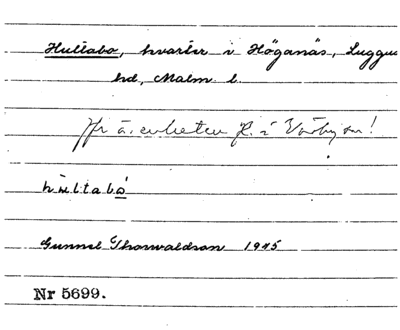 Hultabo, kvarter i Höganäs, Luggu
hd, Malm. l.
Jfr ä. enheten H. i Väsby sn!
hultabo
Gunnel Thorwaldson 1945
Nr 5699.